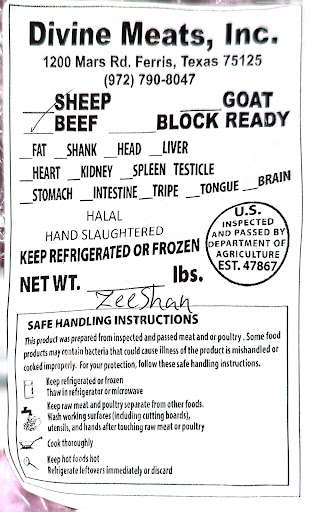 Divine Meats, Inc.
1200 Mars Rd. Ferris, Texas 75125
(972) 790-8047
SHEEP ____GOAT
BEEF ____BLOCK READY
__FAT __SHANK __HEAD __LIVER
__HEART __KIDNEY __SPLEEN TESTICLE
__STOMACH __INTESTINE __TRIPE __TONGUE __BRAIN
HALAL
HAND SLAUGHTERED
KEEP REFRIGERATED OR FROZEN
U.S.
INSPECTED
AND PASSED BY
DEPARTMENT OF
AGRICULTURE
EST. 47867
NET WT. ________ lbs.
ZeeShan
SAFE HANDLING INSTRUCTIONS
This product was prepared from inspected and passed meat and or poultry. Some food
products may contain bacteria that could cause illness of the product is mishandled or
cooked improperly. For your protection, follow these safe handling instructions.
Keep refrigerated or frozen
Thaw in refrigerator or microwave
Keep raw meat and poultry separate from other foods.
Wash working surfaces (including cutting boards),
utensils, and hands after touching raw meat or poultry
Cook thoroughly
Keep hot foods hot
Refrigerate leftovers immediately or discard